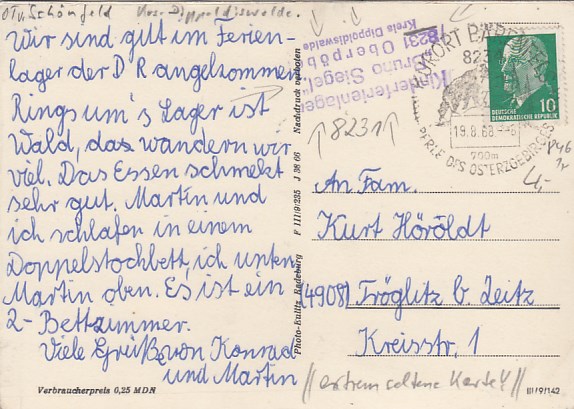 OT v. Schönfeld Krs. Dippoldiswalde.
Wir sind gut im Ferien-
lager der D R angekommen
Rings um's Lager ist
Wald, da wandern wir
viel. Das Essen schmekt
sehr gut. Martin und
ich schlafen in einem
Doppelstochbett, ich unten
Martin oben. Es ist ein
2-Bettzimmer.
Viele Grüße von Konrad
und Martin
Verbraucherpreis 0,25 MDN
Nachdruck verboten
J 38 66
F III/9/235
Photo-Kulitz Radeburg
Kinderferienlager
Bruno Siegel
8231 Oberpöb
Kreis Dippoldiswalde
↑8231↑
KURORT BÄREN
8234
19.8.68
700m
PERLE DES OSTERZGEBIRGES
DEUTSCHE
DEMOKRATISCHE REPUBLIK
10
4,-
An Fam.
Kurt Höröldt
(4908) Tröglitz b. Zeitz
Kreisstr. 1
//extrem seltene Karte!//
III/9/142